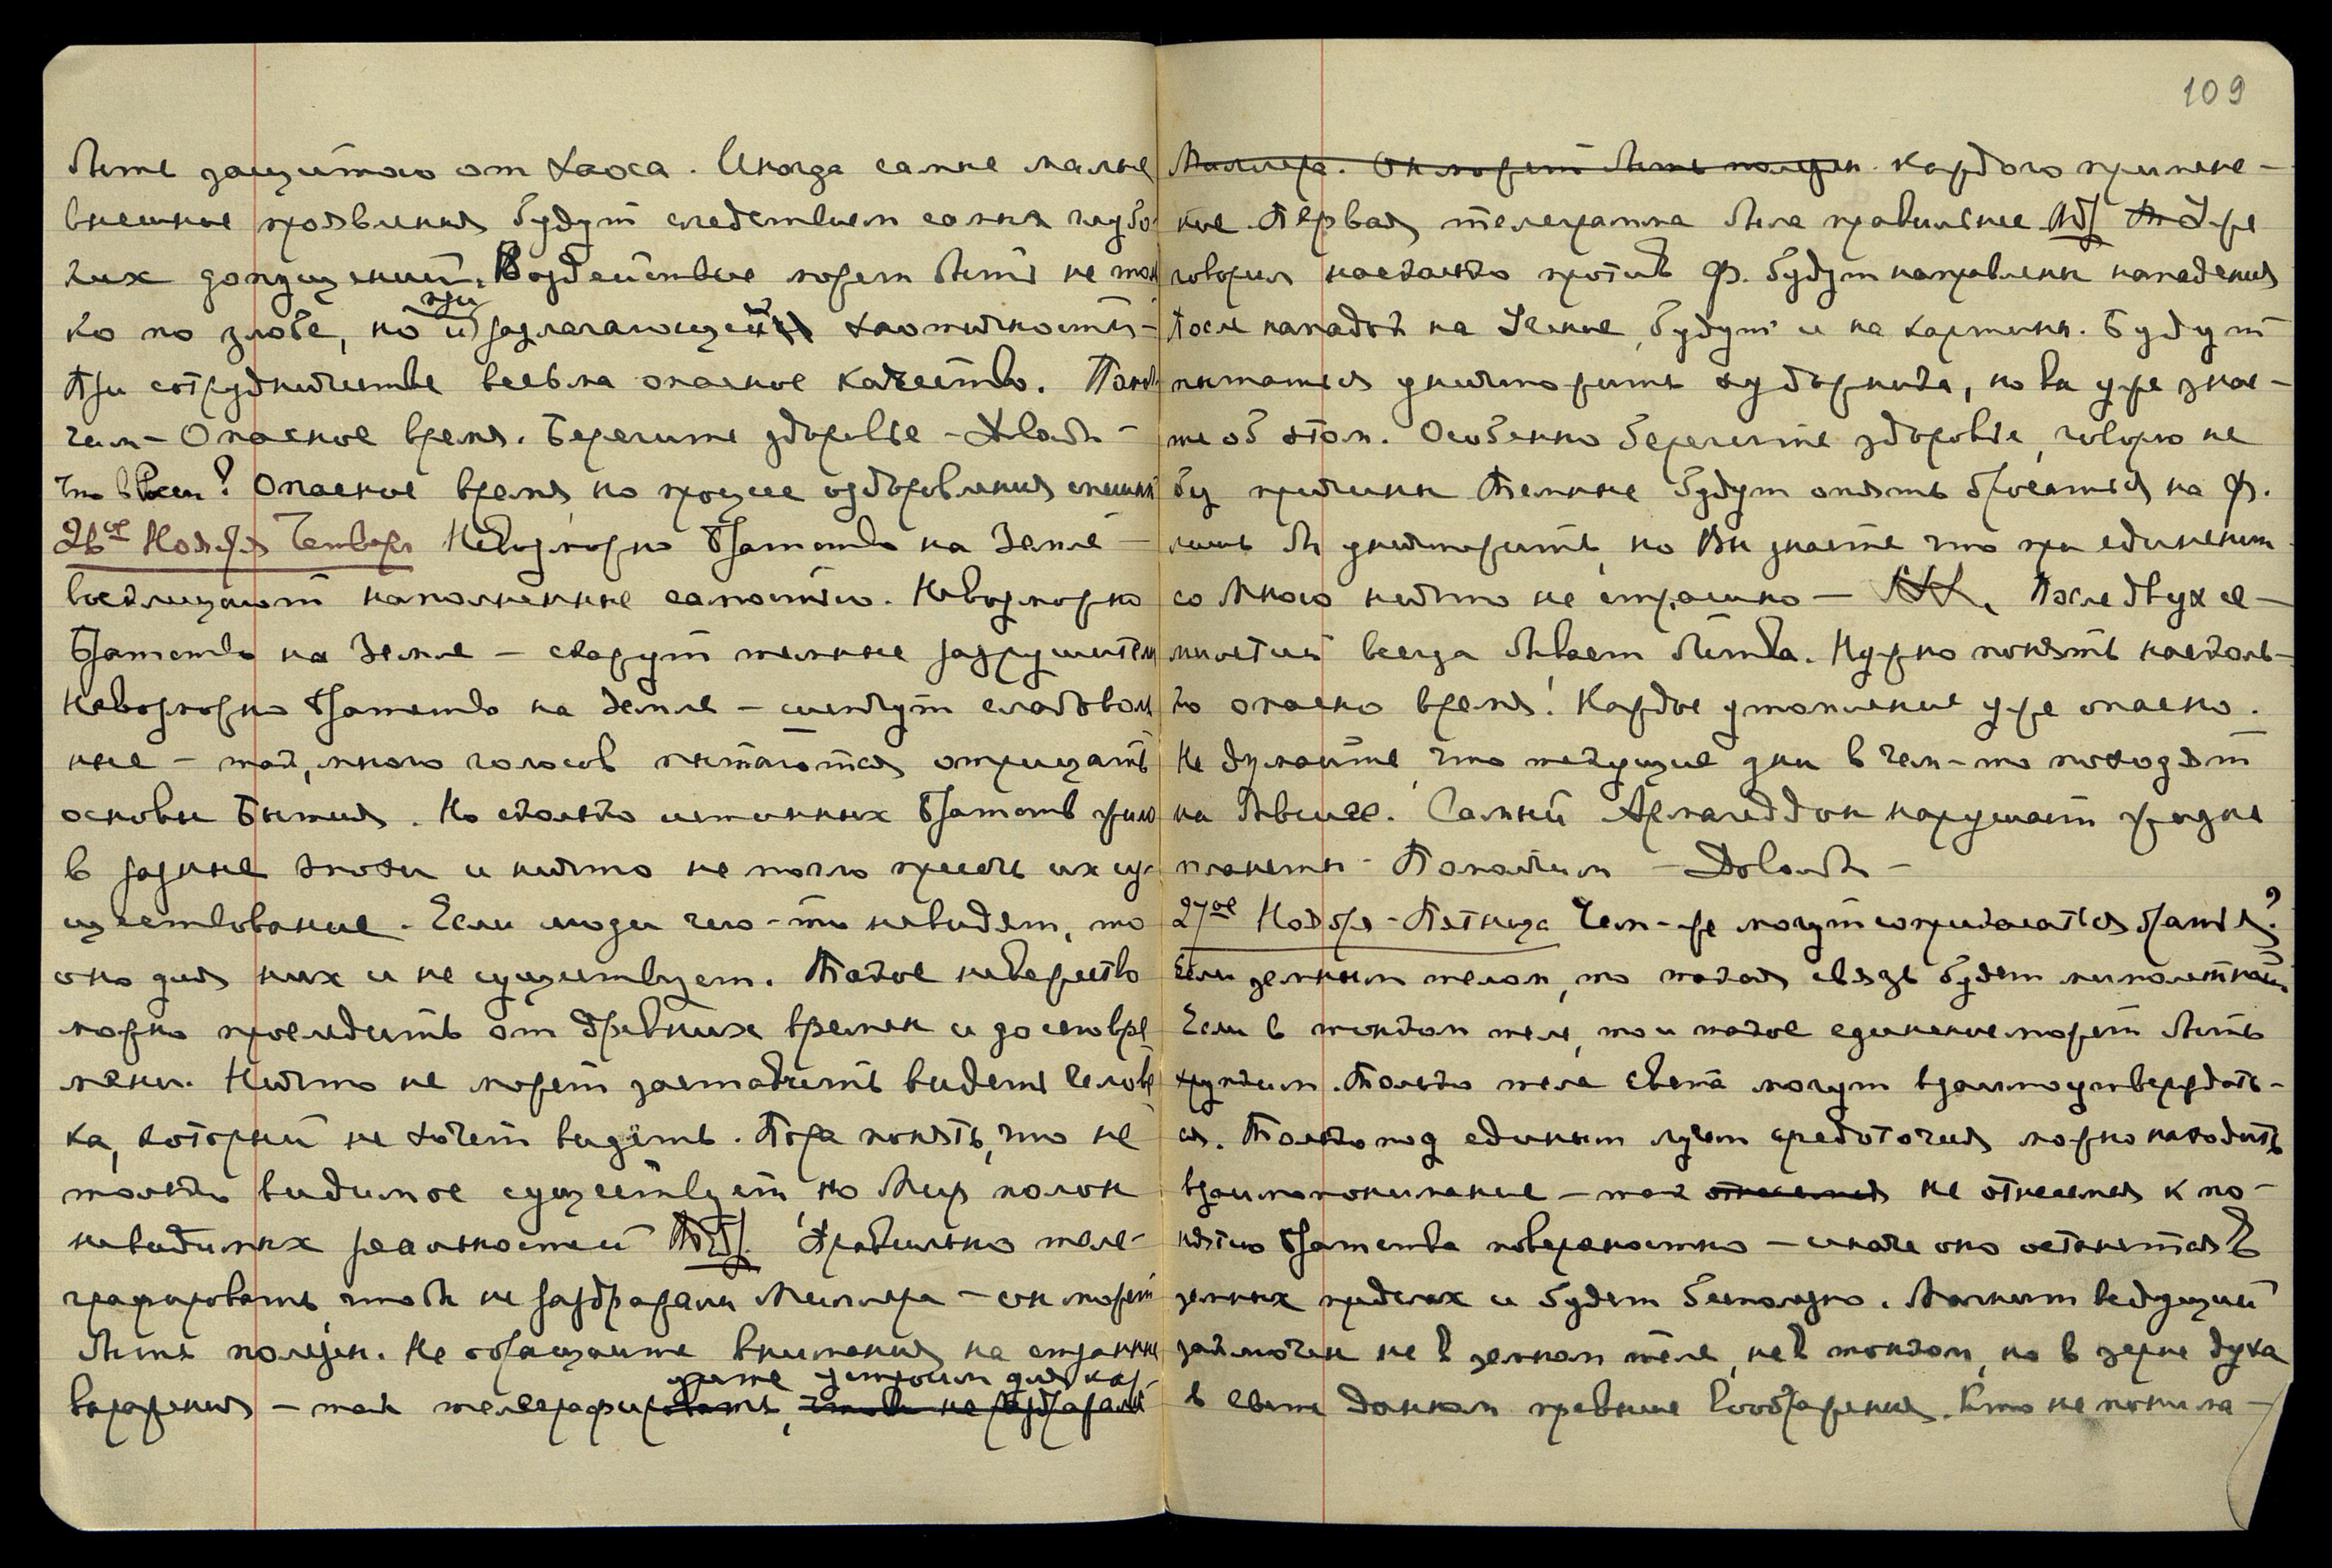 быть защитою от хаоса. Иногда самые малые
внешние проявления будут следствием самых глубо
ких допущений. Воздействие может быть не толь
ко по злобе, но и при разлагающей хаотичности –
При сотрудничестве весьма опасное качество. Конч
чим – Опасное время. Берегите здоровье – Довольно –
Что в Росси? Опасное время, но процесс оздоровления спешит
26ое Ноября Четверг Невозможно Братство на Земле –
восклицают наполненные самостью. Невозможно
Братство на Земле – скажут темные разрушители
Невозможно Братство на Земле – шепчут слабоволь
ные – так, много голосов пытаются отрицать
основы Бытия. Но сколько истинных Братств жило
в разные эпохи и ничто не могло пресечь их су-
ществование. Если люди чего-то не видят, то
оно для них и не существует. Такое невежество
можно проследить от древних времен и до сего вре
мени. Ничто не может заставить видеть челове
ка, который не хочет видеть. Пора понять, что не
только видимое существует, но Мир полон
невидимых реальностей Правильно теле-
графировать, чтобы не раздражали Миллера – он может
быть полезен. Не обращайте внимания на странные
выражения – так телеграфи ровать, чтобы не раздражали
109
Миллера. Он может быть полезен. каждого примене-
ние Первая телеграмма была правильнее Уже
говорил насколько против Ф. будут направлены нападения
После нападок на Учение, будут и на картины. Будут
пытаться уничтожить художника, но вы уже знае-
те об этом. Особенно берегите здоровье, говорю не
без причины Темные будут опять бросаться на Ф.
лишь бы уничтожить, но Вы знаете что при единении
со Мною ничто не страшно – После двух се-
милетий всегда бывает битва. Нужно понять насколь-
ко опасно время! Каждое утомление уже опасно.
Не думайте, что текущие дни в чем-то походят
на бывшее. Самый Армагеддон нарушает жизнь
планеты – Кончим – Довольно –
27ое Ноября – Пятница Чем-же могут соприкасаться братья?
Если земным телом, то такая связь будет мимолетной
Если в тонком теле, то и такое единение может быть
хрупким. Только тела света могут взаимоутверждать-
ся. Только под единым лучом средоточия можно находить
взаимопонимание – так отнесемся не отнесемся к по-
нятию Братства поверхностно – иначе оно останется в
земных пределах и будет бесполезно. Магнит ведущий
заключен не в земном теле, не в тонком, но в зерне духа
в свете данном превыше воображения. Кто не понима-